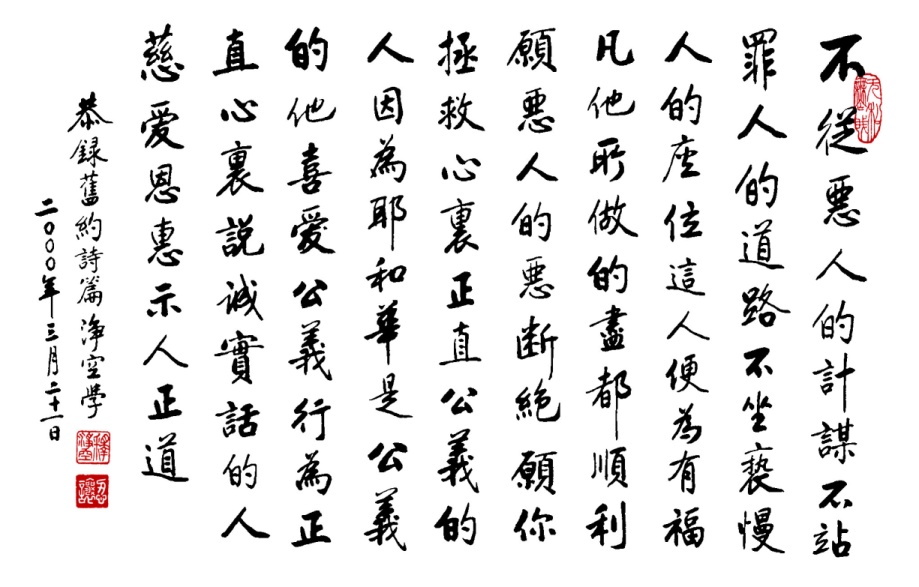 不從惡人的計謀不站
罪人的道路不坐褻慢
人的座位這人便為有福
凡他所做的盡都順利
願惡人的惡断絕願你
拯救心裏正直公義的
人因為耶和華是公義
的他喜愛公義行為正
直心裏說誠實話的人
慈愛恩惠示人正道
恭録舊約詩篇淨空學
二〇〇〇年三月二十一日